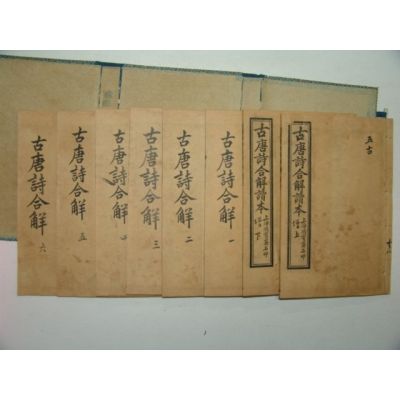 五古
古唐詩合解讀本
增上
古唐詩合解讀本
增下
古唐詩合解 一
古唐詩合解 二
古唐詩合解 三
古唐詩合解 四
古唐詩合解 五
古唐詩合解 六